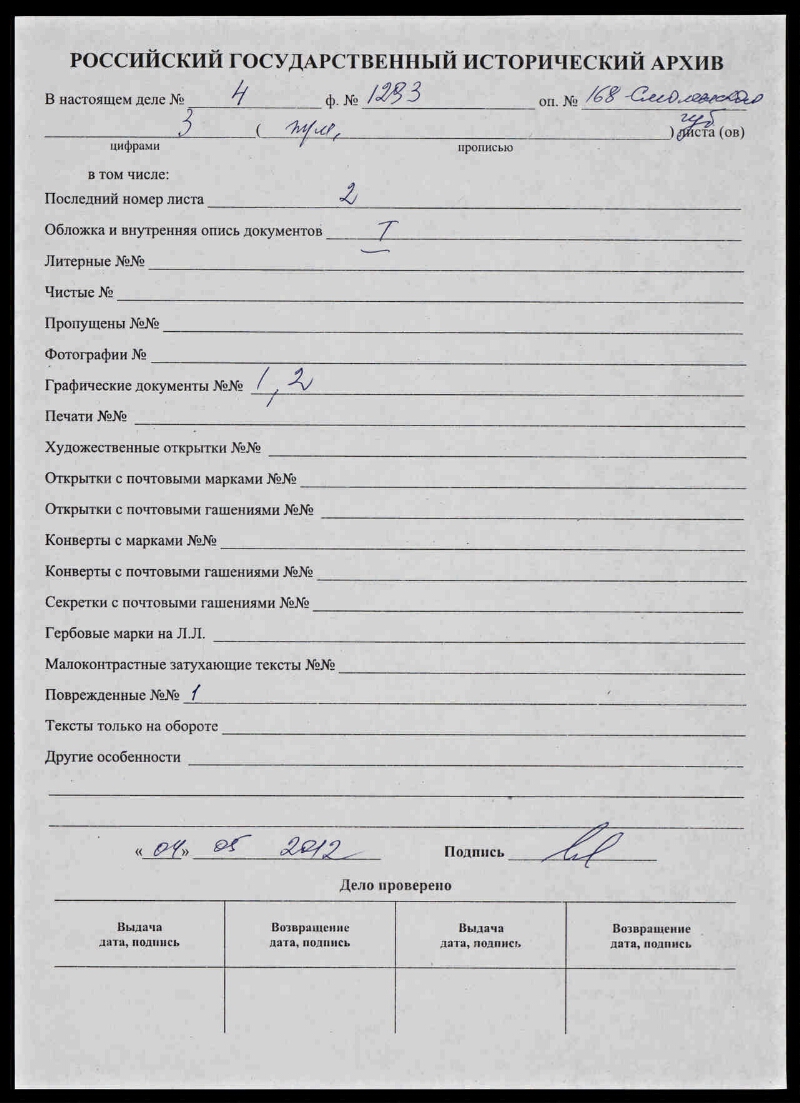 РОССИЙСКИЙ ГОСУДАРСТВЕННЫЙ ИСТОРИЧЕСКИЙ АРХИВ
В настоящем деле № 4 ф. № 1293 оп. № 168 Смоленского
губ
3 ( три ) листа (ов)
цифрами прописью
в том числе:
Последний номер листа 2
Обложка и внутренняя опись документов I
Литерные №№
Чистые №
Пропущены №№
Фотографии №
Графические документы №№ 1, 2
Печати №№
Художественные открытки №№
Открытки с почтовыми марками №№
Открытки с почтовыми гашениями №№
Конверты с марками №№
Конверты с почтовыми гашениями №№
Секретки с почтовыми гашениями №№
Гербовые марки на Л.Л.
Малоконтрастные затухающие тексты №№
Поврежденные №№ 1
Тексты только на обороте
Другие особенности
« 04 » 05 2012 Подпись
Дело проверено
Выдача Возвращение Выдача Возвращение
дата, подпись дата, подпись дата, подпись дата, подпись